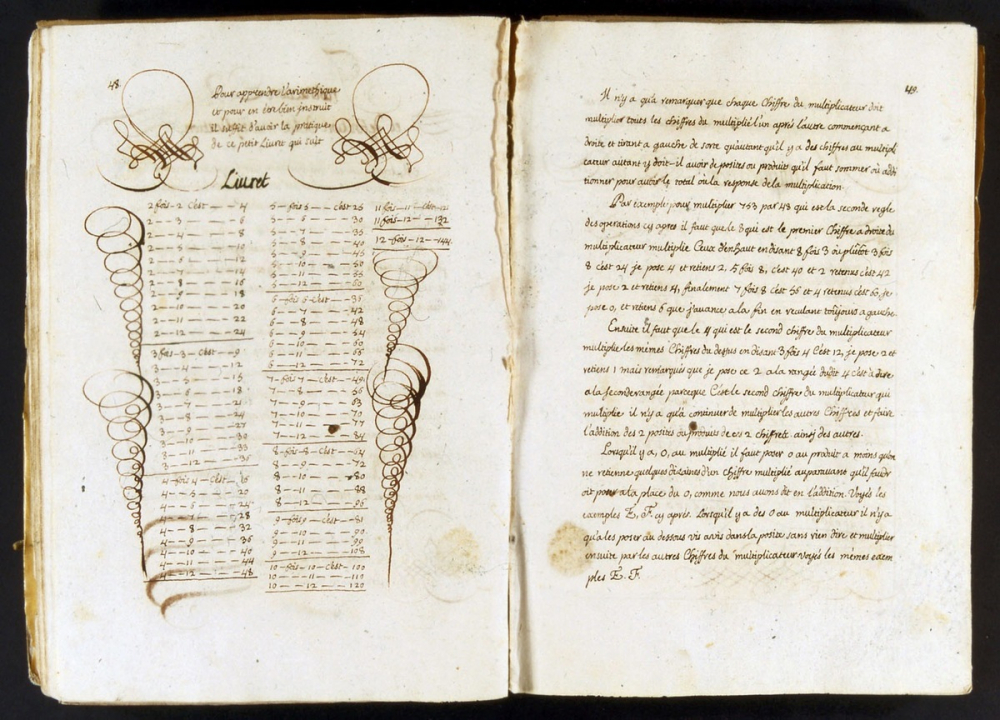 48.
Pour apprendre l'arimethique
et pour en être bien Instruit
il suffit d'avoir la pratique
de ce petit Livret qui suit
Livret
2 fois - 2 C'est — 4
2 — 3 — — 6
2 — 4 — — 8
2 — 5 — — 10
2 — 6 — — 12
2 — 7 — — 14
2 — 8 — — 16
2 — 9 — — 18
2 — 10 — — 20
2 — 11 — — 22
2 — 12 — — 24
3 fois — 3 — C'est — 9
3 — 4 — — 12
3 — 5 — — 15
3 — 6 — — 18
3 — 7 — — 21
3 — 8 — — 24
3 — 9 — — 27
3 — 10 — — 30
3 — 11 — — 33
3 — 12 — — 36
4 fois 4 — C'est — 16
4 — 5 — — 20
4 — 6 — — 24
4 — 7 — — 28
4 — 8 — — 32
4 — 9 — — 36
4 — 10 — — 40
4 — 11 — — 44
4 — 12 — — 48
5 — fois 5 — C'est 25
5 — 6 — — 30
5 — 7 — — 35
5 — 8 — — 40
5 — 9 — — 45
5 — 10 — — 50
5 — 11 — — 55
5 — 12 — — 60
6 — fois 6 — C'est — 36
6 — 7 — — 42
6 — 8 — — 48
6 — 9 — — 54
6 — 10 — — 60
6 — 11 — — 66
6 — 12 — — 72
7 — fois 7 — C'est — 49
7 — 8 — — 56
7 — 9 — — 63
7 — 10 — — 70
7 — 11 — — 77
7 — 12 — — 84
8 — fois — 8 — C'est — 64
8 — 9 — — 72
8 — 10 — — 80
8 — 11 — — 88
8 — 12 — — 96
9 — fois 9 — C'est — 81
9 — 10 — — 90
9 — 11 — — 99
9 — 12 — — 108
10 — fois — 10 — C'est — 100
10 — — 11 — — 110
10 — — 12 — — 120
11 fois — 11 — C'est — 121
11 fois — 12 — — 132
12 — fois — 12 — 144
49.
Il n'y a qu'a remarquer que chaque Chiffre du multiplicateur doit
multiplier touts les chiffres du multiplié l'un après l'autre commençant a
droite et tirant a gauche de sorte qu'autant qu'il y a des chiffres au multipli
cateur autant y doit-il avoir de posites ou produits qu'il faut sommer où addi
tionner pour avoir le total ou la response de la multiplication.
Par Exemple pour multiplier 753 par 48 qui est la seconde regle
des operations cy apres il faut que le 8 qui est le premier Chiffre a droite du
multiplicateur multiplie Ceux d'enhaut en disant 8 fois 3 où plûtôt 3 fois
8 c'est 24 je pose 4 et retiens 2, 5 fois 8, c'est 40 et 2 retenus c'est 42
je pose 2 et retiens 4, finalement 7 fois 8 c'est 56 et 4 retenus c'est 60, je
pose 0, et retiens 6 que j'avance a la fin en reculant toûjours a gauche.
Ensuite il faut que le 4 qui est le second chiffre du multiplicateur
multiplie les mêmes Chiffres du dessus en disant 3 fois 4 C'est 12, je pose 2 et
retiens 1 mais remarqués que je pose ce 2 a la rangée dudit 4 c'est à dire
a la seconde rangée parceque C'est le second chiffre du multiplicateur qui
multiplie il n'y a qu'a continuer de multiplier les autres Chiffres et faire
l'addition des 2 posites ou produits de ces 2 chiffres ainsj des autres.
Lorsqu'il y a, 0, au multiplié il faut poser 0 au produit a moins qu'on
ne retienne quelques dizaines d'un chiffre multiplié auparavant qu'il faudr
oit poser a la place du 0, comme nous avons dit en l'addition. Voyés les
exemples E. F. cy après. Lorsqu'il y a des 0 au multiplicateur il n'y a
qu'a les poser au dessous vis avis dans la posite sans rien dire et multiplier
ensuite par les autres Chiffres du multiplicateur voyés les mêmes exem
ples E. F.